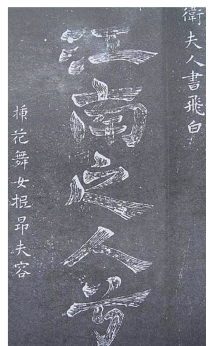 衛夫人書飛白
江南之人兮
插花舞女掍昂夫容